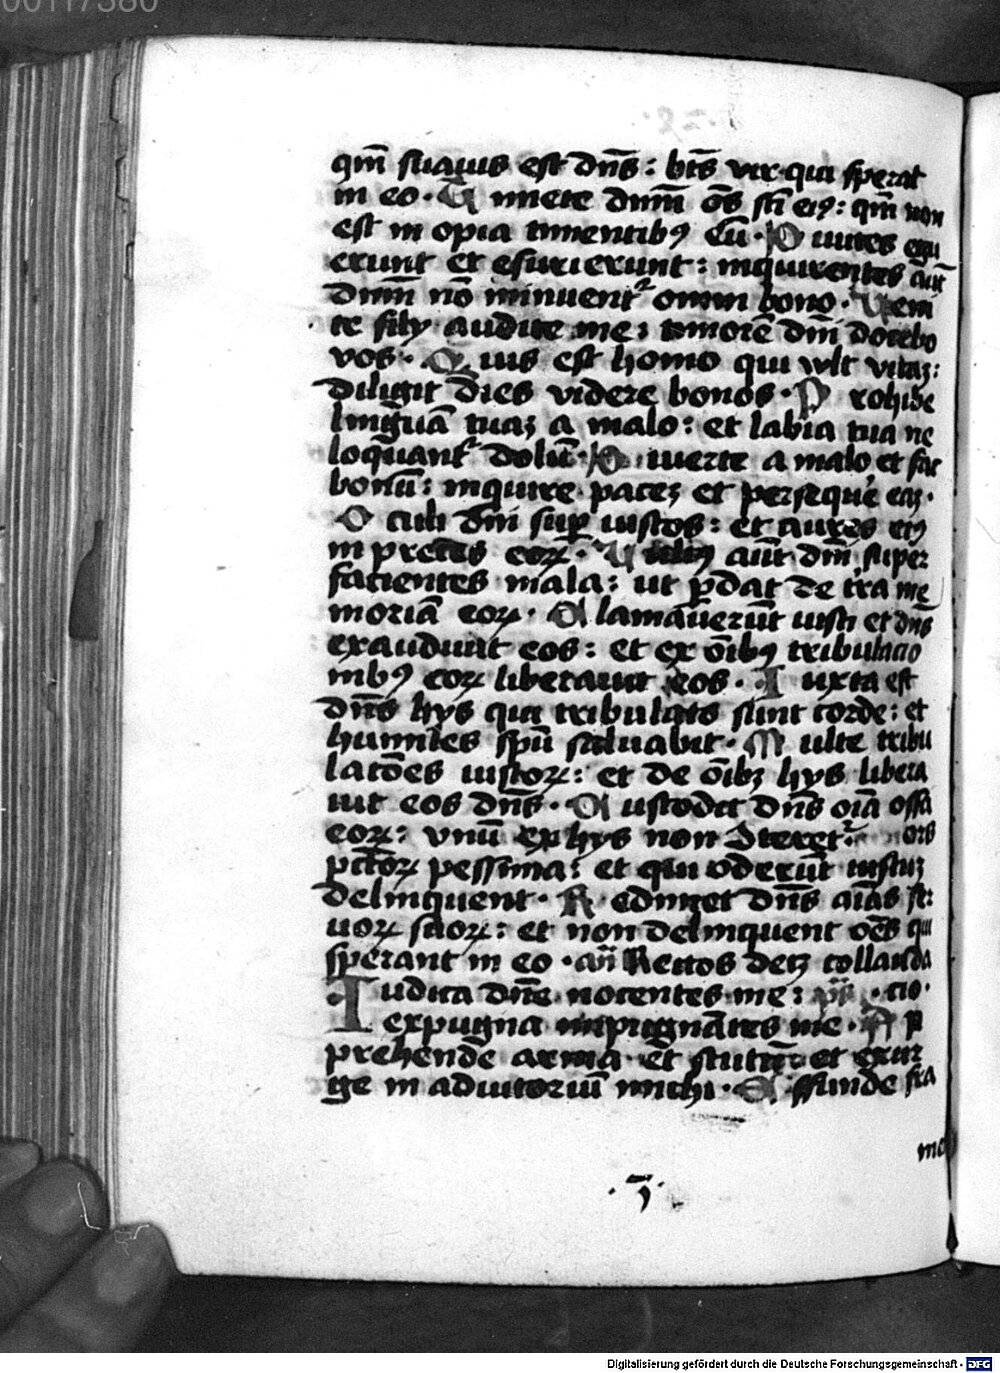 00117380
qm̄ suauis est dn̄s : bt̄s vir qui sperat
in eo · T imete dnm̄ oē̄s sc̄i eiꝰ : qm̄ non
est in opia timentibꝫ eū · D iuites egu
erunt et esurierunt : inquirentes aut̄
dnm̄ nō minuent᷑ omni bono · Veni
te filij audite me : timorē dn̄i docebo
vos · Q uis est homo qui wlt vitaꝫ :
diligit dies videre bonos · P rohibe
linguā tuaꝫ a malo : et labia tua ne
loquant᷑ dolū · D iuerte a malo et fac
bonū : inquire paceꝫ et perseque eaꝫ ·
O culi dn̄i suꝑ iustos : et aures eiꝰ
in preces eoꝝ · V ultꝰ aūt dn̄i super
facientes mala : ut ꝑdat de tr̄a me
moriā eoꝝ · C lamauerūt iusti et dn̄s
exaudiuit eos : et ex oībꝫ tribulacio
nibꝰ eoꝝ liberauit eos · I uxta est
dn̄s hys qui tribulato sunt corde : et
humiles spū saluabit · M ulte tribu
lacōes iustoꝝ : et de oībꝫ hys libera
uit eos dn̄s · C ustodit dn̄s oīa ossa
eoꝝ : vnū ex hys non ꝯteret᷑ · ors
pct̄oꝝ pessima : et qui oderūt iustuꝫ
delinquent · R edimet dn̄s aīas ser
uoꝝ suoꝝ : et non delinquent oēs qui
sperant in eo · an̄ Rectos decꝫ collauda
cio ·
I udica dn̄e nocentes me : pſ̄
expugna inpugnātes me · A p
prehende arma et scutū : et exur
ge in adiutoriū michi · E ffunde fra
me
· 7 ·
Digitalisierung gefördert durch die Deutsche Forschungsgemeinschaft - DFG